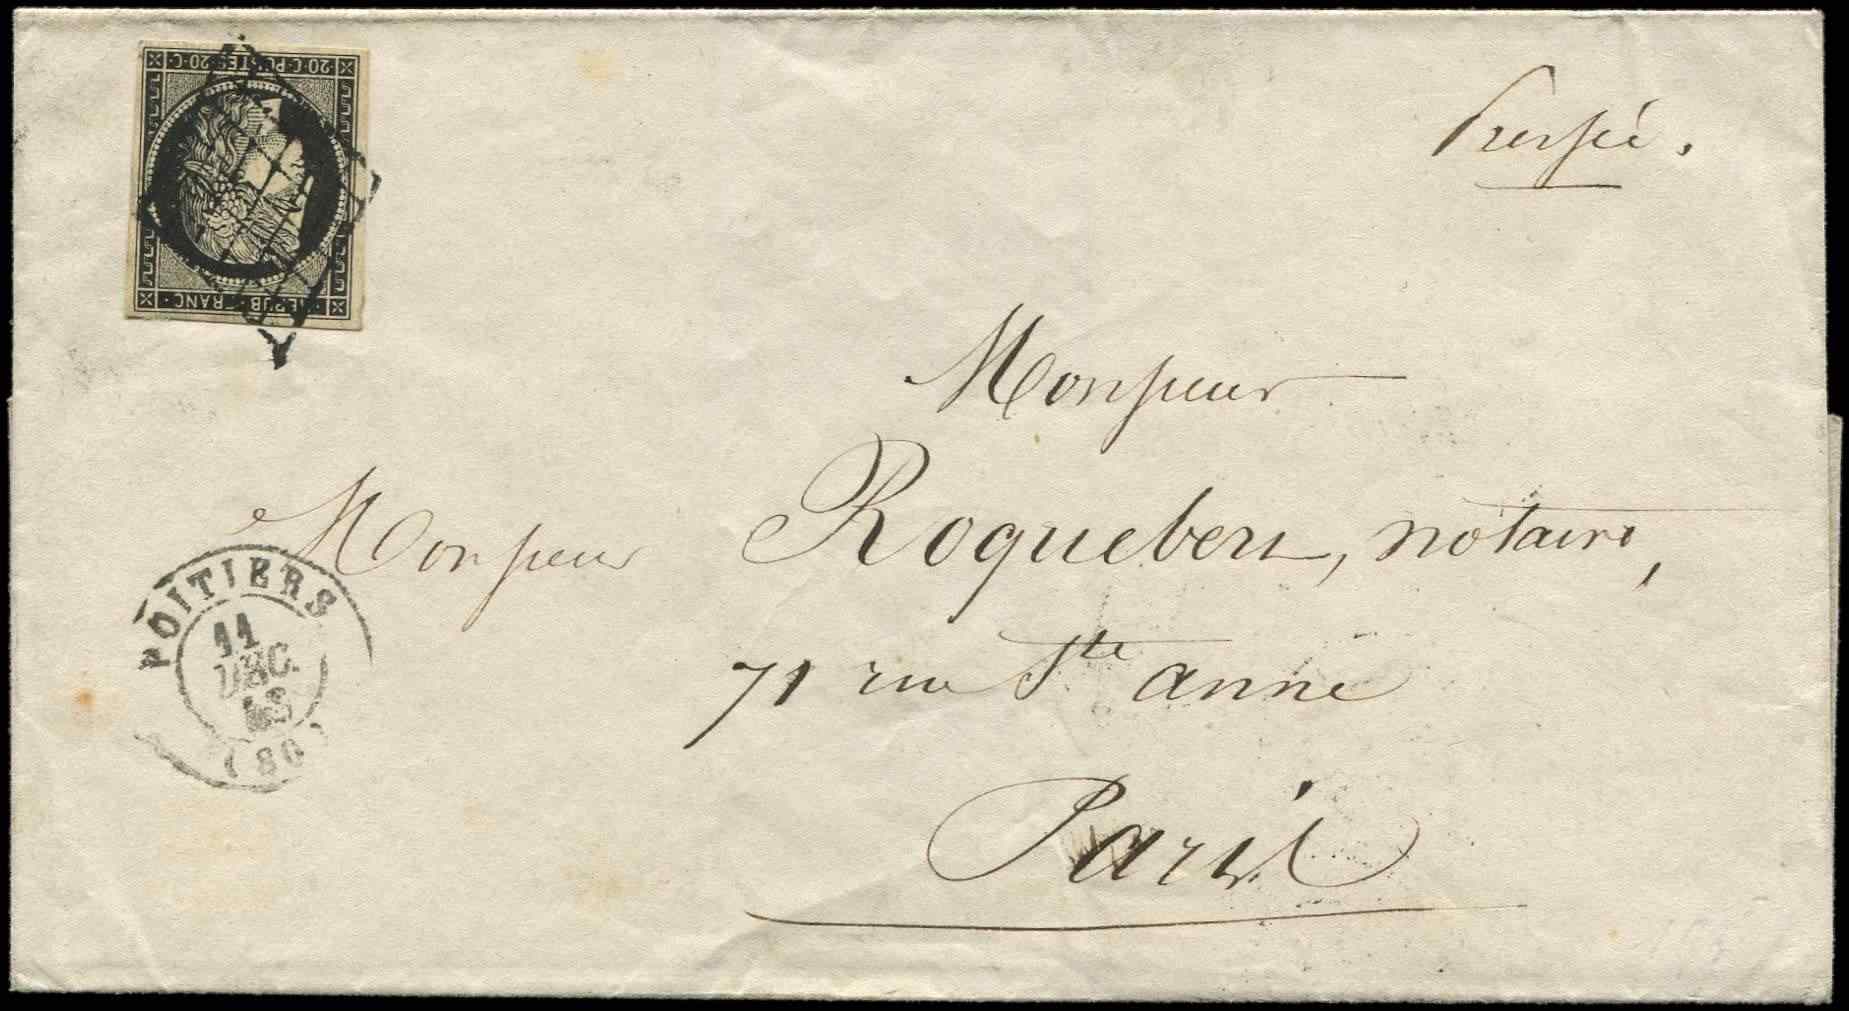 20·C·POSTES·20·C
REPUB·FRANC·
Pressée.
Monsieur
Monsieur Roquebert, notaire,
71 rue Ste anne
Paris
POITIERS
11
DEC.
(80)